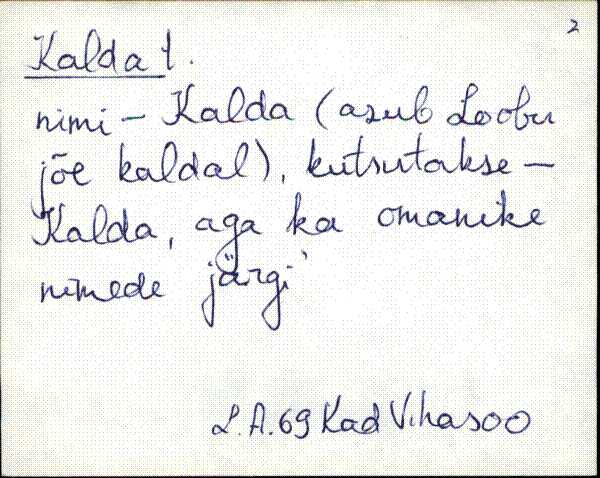 2
Kalda t.
nimi – Kalda (asub Loobu
jõe kaldal), kutsutakse –
Kalda, aga ka omanike
nimede järgi
L.A. 69 Kad Vihasoo